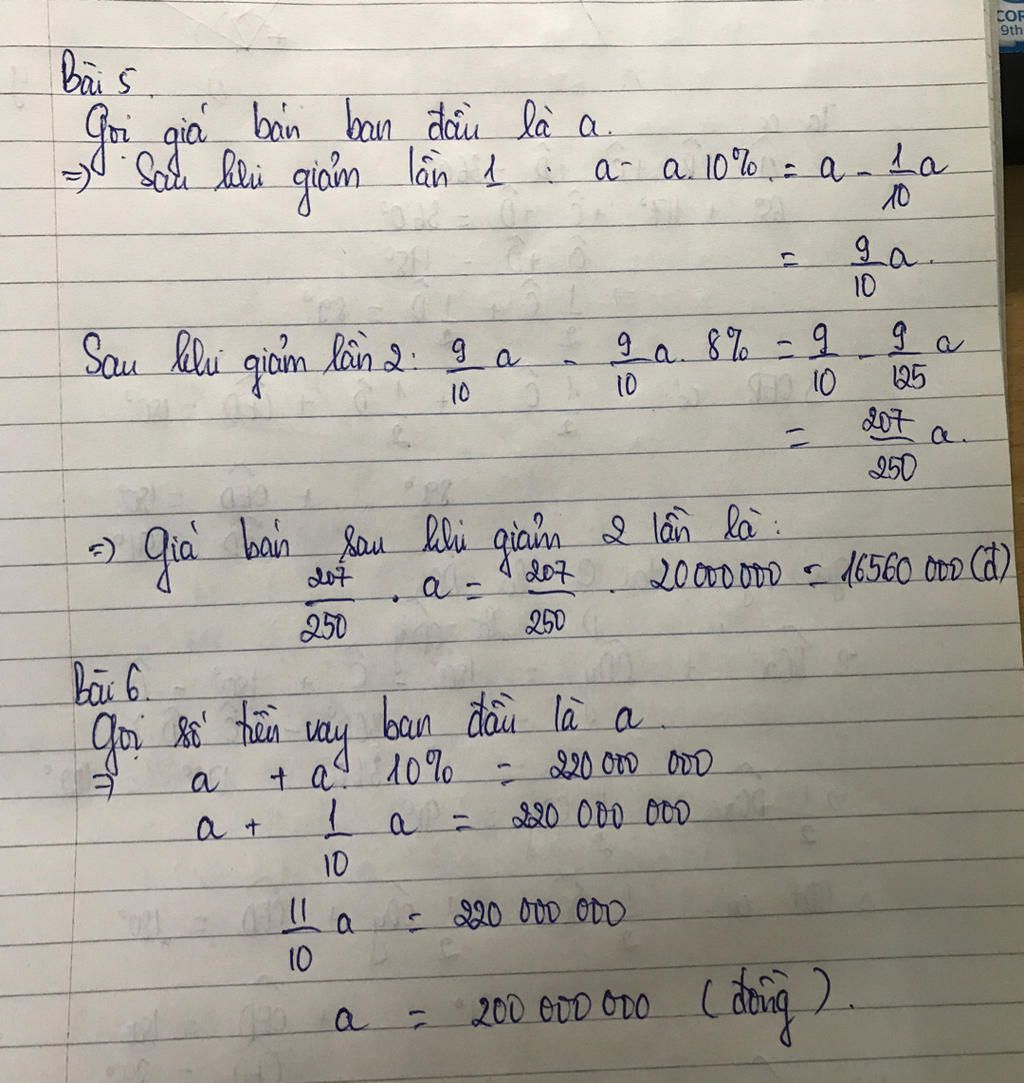 COR
9th
Bài 5.
Gọi giá bán ban đầu là a.
=> Sau khi giảm lần 1 : a - a.10% = a - 1/10 a
= 9/10 a.
Sau khi giảm lần 2: 9/10 a - 9/10 a. 8% = 9/10 - 9/125 a
= 207/250 a.
=> Giá bán sau khi giảm 2 lần là:
207/250 . a = 207/250 . 20000000 = 16560 000 (đ)
Bài 6.
Gọi số tiền vay ban đầu là a.
=> a + a. 10% = 220 000 000
a + 1/10 a = 220 000 000
11/10 a = 220 000 000
a = 200 000 000 (đồng).